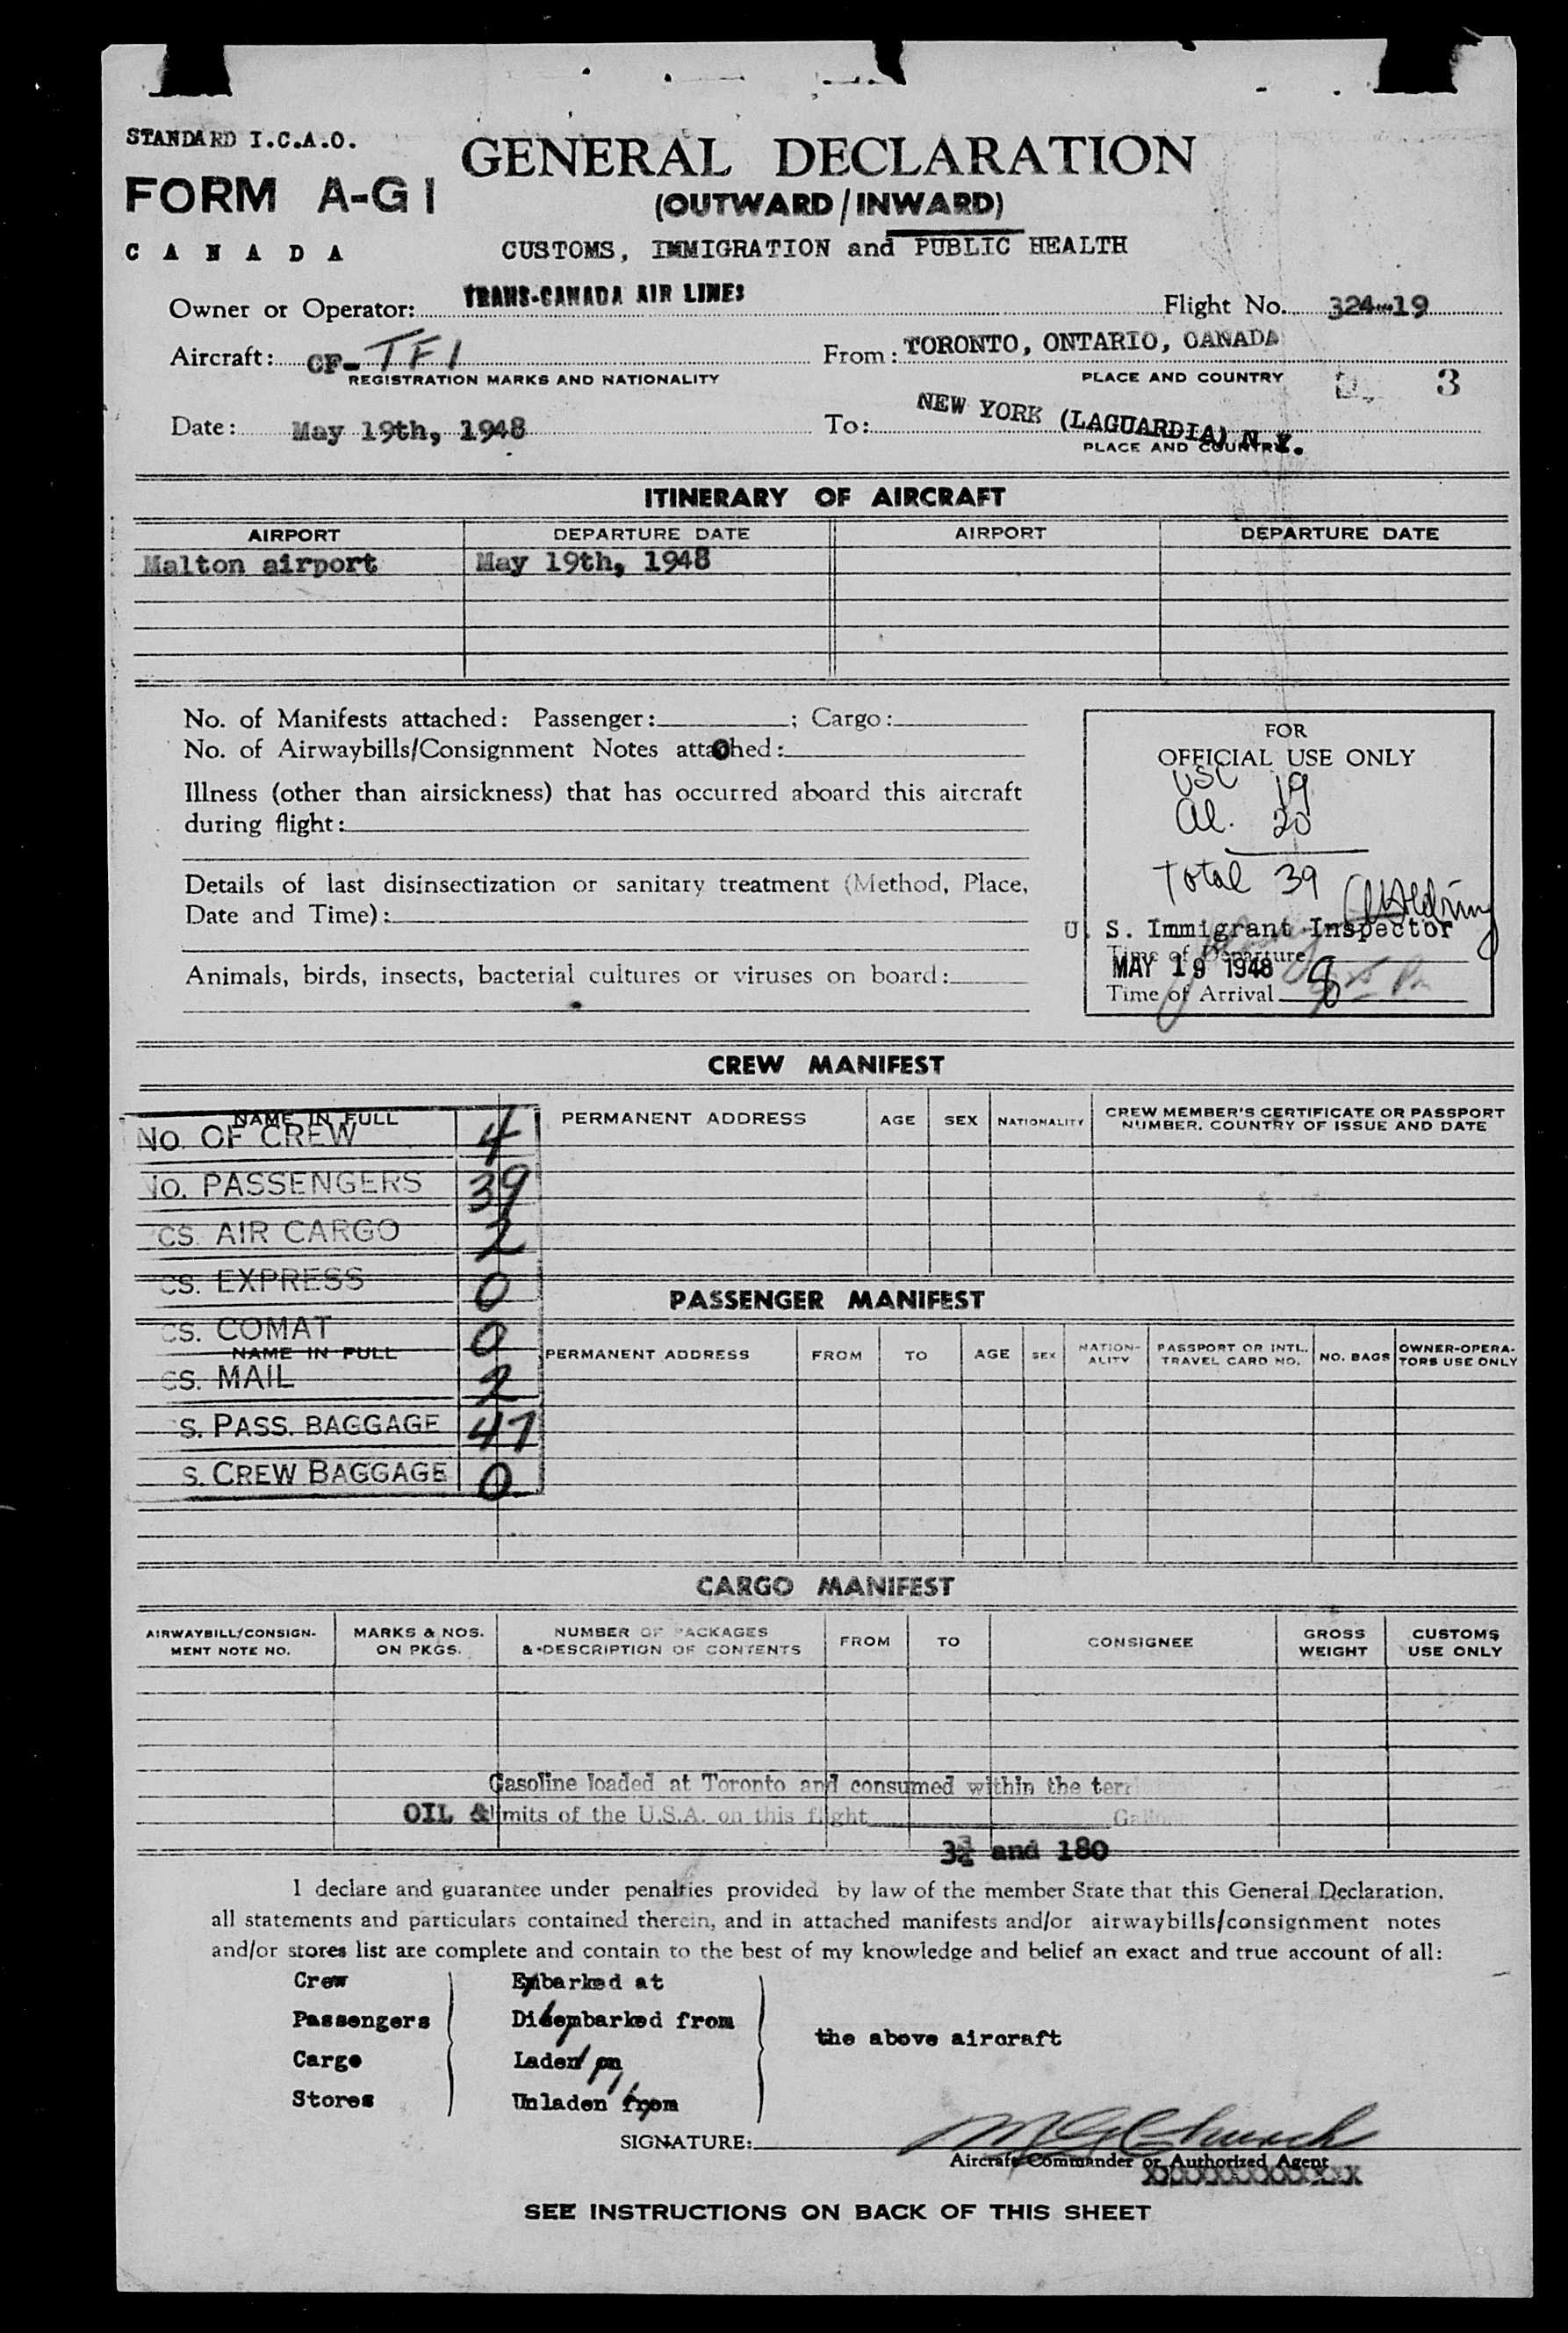 STANDARD I.C.A.O.
FORM A-G1
CANADA
GENERAL DECLARATION
(OUTWARD/INWARD)
CUSTOMS, IMMIGRATION and PUBLIC HEALTH
Owner or Operator: TRANS-CANADA AIR LINES
Flight No. 324-19
Aircraft: CF-TFI
REGISTRATION MARKS AND NATIONALITY
From: TORONTO, ONTARIO, CANADA
PLACE AND COUNTRY
3
Date: May 19th, 1948
To: NEW YORK (LAGUARDIA) N.Y.
PLACE AND COUNTRY
ITINERARY OF AIRCRAFT
AIRPORT DEPARTURE DATE AIRPORT DEPARTURE DATE
Malton airport May 19th, 1948
No. of Manifests attached: Passenger: ; Cargo:
No. of Airwaybills/Consignment Notes attached:
Illness (other than airsickness) that has occurred aboard this aircraft
during flight:
Details of last disinsectization or sanitary treatment (Method, Place,
Date and Time):
Animals, birds, insects, bacterial cultures or viruses on board:
FOR
OFFICIAL USE ONLY
USC 19
Al. 20
Total 39
U. S. Immigrant Inspector
Time of Departure
MAY 19 1948
Time of Arrival
CREW MANIFEST
NAME IN FULL PERMANENT ADDRESS AGE SEX NATIONALITY CREW MEMBER'S CERTIFICATE OR PASSPORT
NUMBER, COUNTRY OF ISSUE AND DATE
NO. OF CREW 4
NO. PASSENGERS 39
CS. AIR CARGO 2
CS. EXPRESS 0
PASSENGER MANIFEST
CS. COMAT 0
NAME IN FULL PERMANENT ADDRESS FROM TO AGE SEX NATION-
ALITY PASSPORT OR INTL.
TRAVEL CARD NO. NO. BAGS OWNER-OPERA-
TORS USE ONLY
CS. MAIL 2
S. PASS. BAGGAGE 47
S. CREW BAGGAGE 0
CARGO MANIFEST
AIRWAYBILL/CONSIGN-
MENT NOTE NO. MARKS & NOS.
ON PKGS. NUMBER OF PACKAGES
& DESCRIPTION OF CONTENTS FROM TO CONSIGNEE GROSS
WEIGHT CUSTOMS
USE ONLY
Gasoline loaded at Toronto and consumed within the terr
OIL & limits of the U.S.A. on this flight
3¾ and 180
I declare and guarantee under penalties provided by law of the member State that this General Declaration,
all statements and particulars contained therein, and in attached manifests and/or airwaybills/consignment notes
and/or stores list are complete and contain to the best of my knowledge and belief an exact and true account of all:
Crew Embarked at
Passengers Disembarked from
the above aircraft
Cargo Laden on
Stores Unladen from
SIGNATURE: M G Church
Aircraft Commander or Authorized Agent
XXXXXXXXXXXXX
SEE INSTRUCTIONS ON BACK OF THIS SHEET